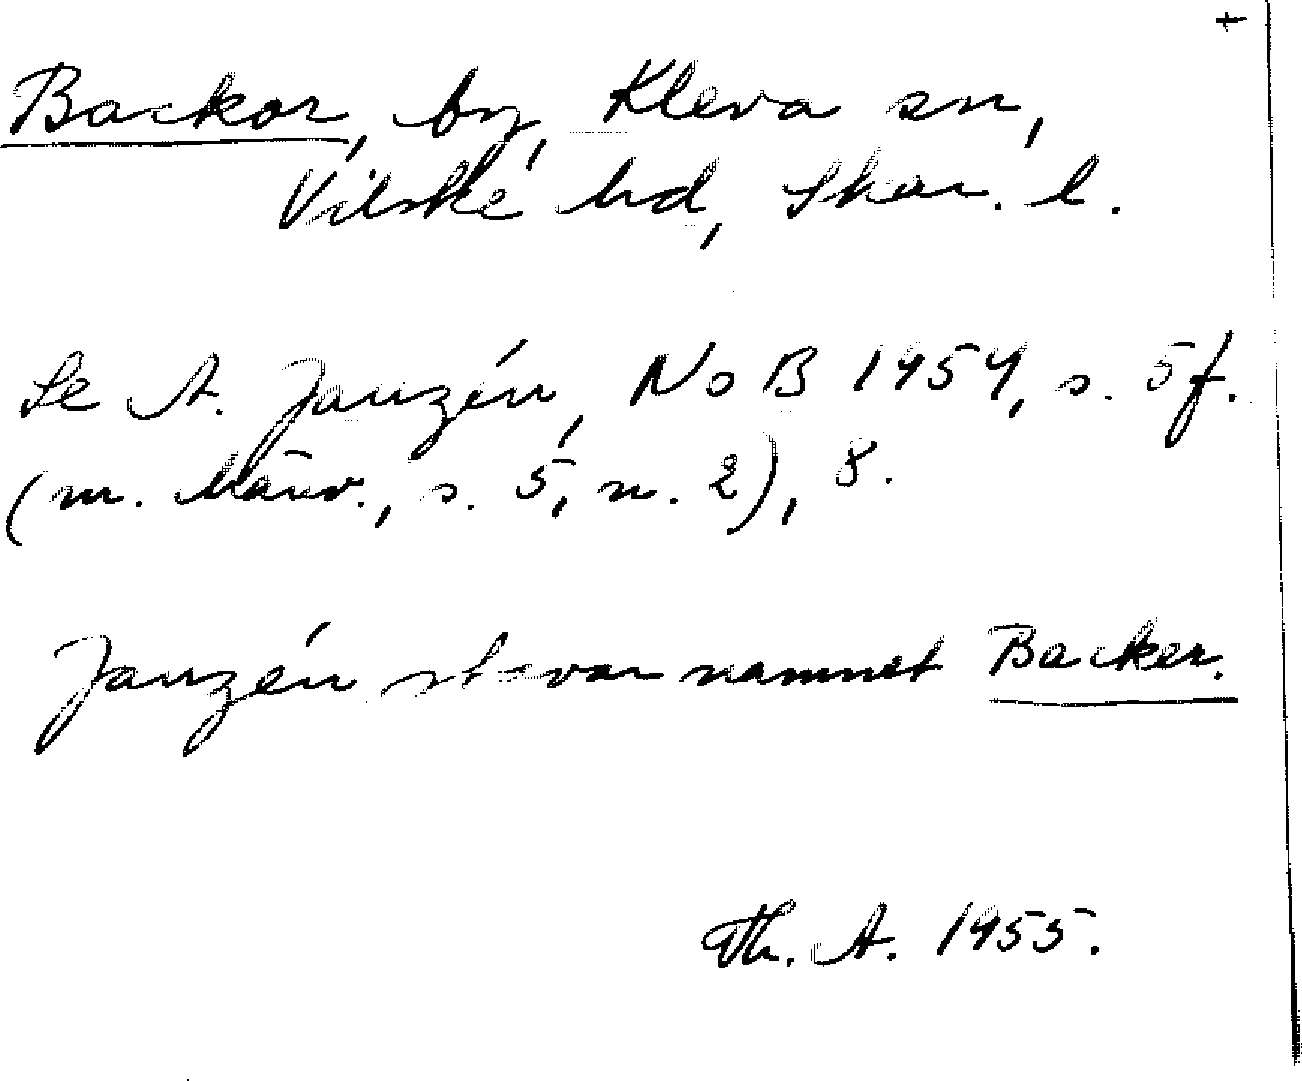 +
Backor, by, Kleva sn,
Vilske hd, Skar. l.
Se A. Janzén, NoB 1954, s. 5 f.
(m. hänv., s. 5, n. 2), 8.
Janzén stavar namnet Backer.
Th. A. 1955.